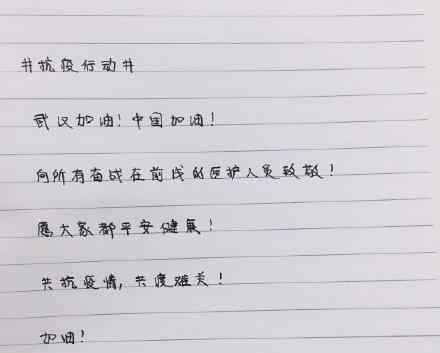 #抗疫行动#
武汉加油!中国加油!
向所有奋战在前线的医护人员致敬!
愿大家都平安健康!
共抗疫情,共度难关!
加油!